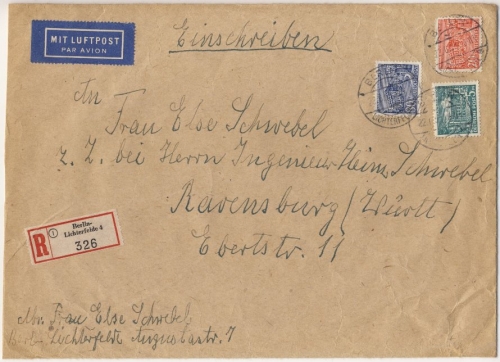 MIT LUFTPOST
PAR AVION
Einschreiben
An
Frau Else Schwebel
z. Z. bei Herrn Ingenieur Heinz Schwebel
Ravensburg (Württ)
Ebertstr. 11
R
1
Berlin-
Lichterfelde 4
326
Abs. Frau Else Schwebel
Berlin-Lichterfelde Augustastr. 7